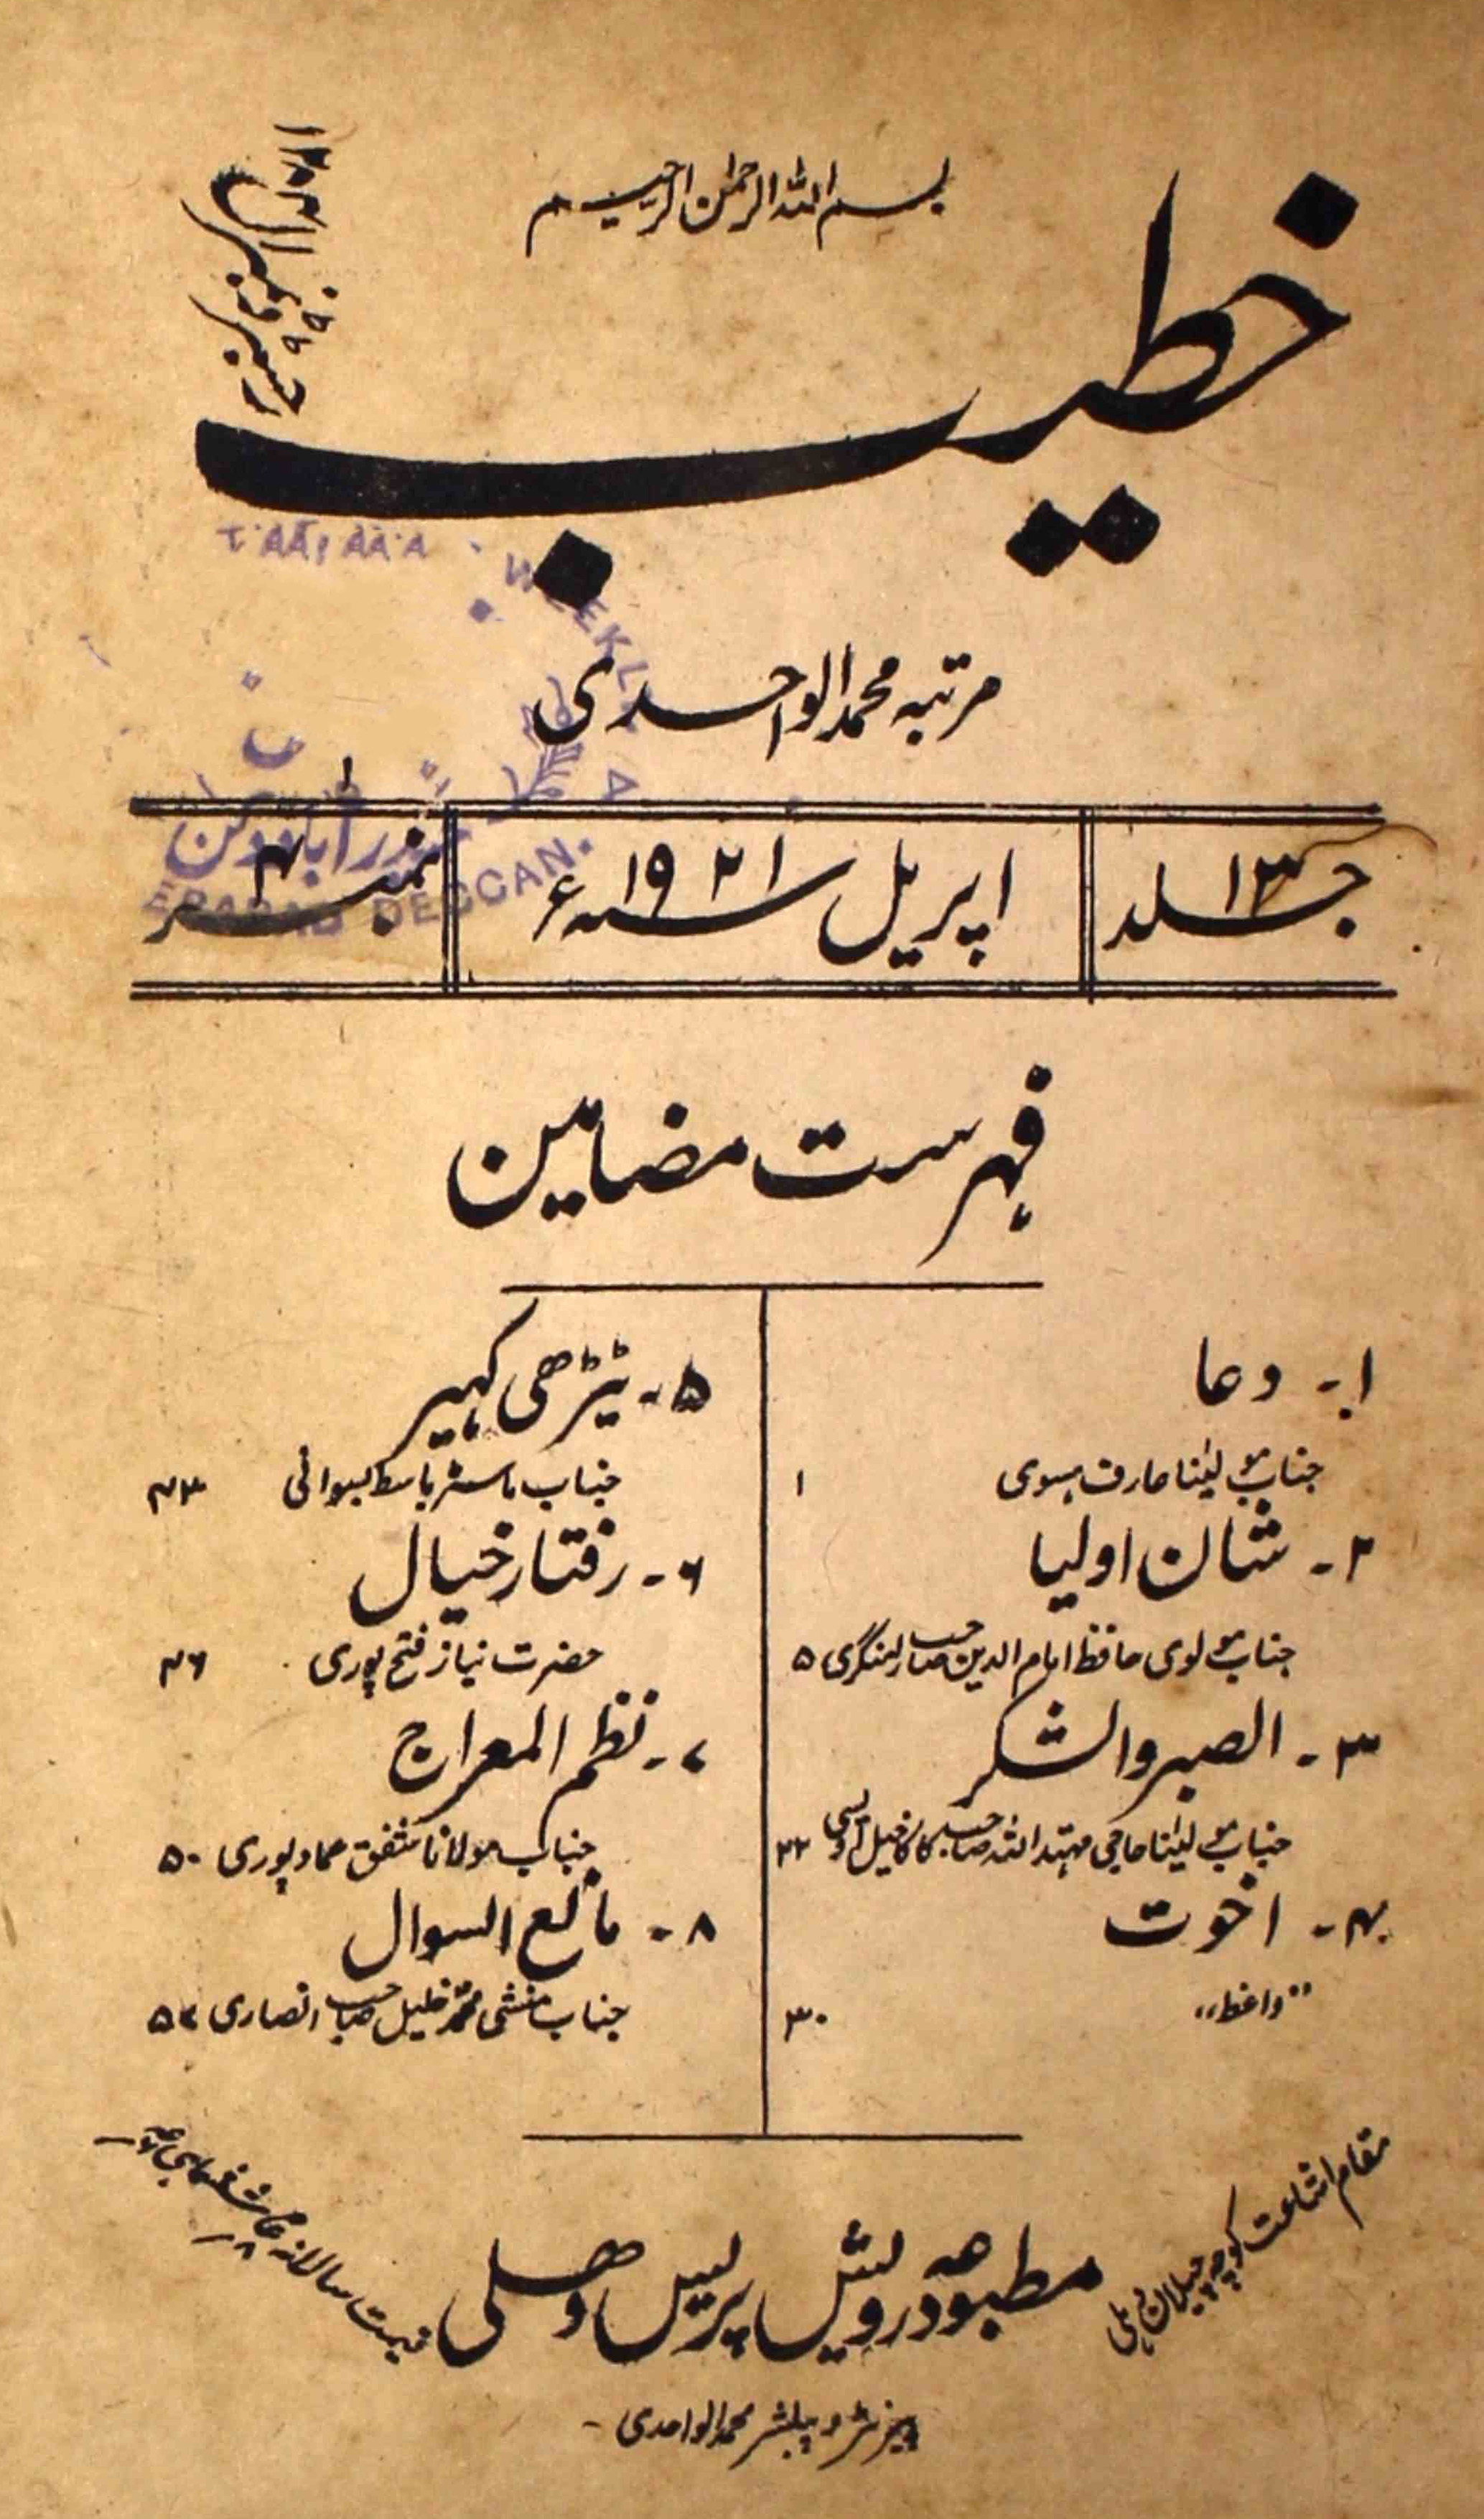 بسم اللہ الرحمٰن الرحیم
خطیب
مرتبہ محمد الواحدی
جلد ۱۳
اپریل ۱۹۲۱ سنہ ء
نمبر ۴
WEEKLY
DECCAN.
فہرست مضامین
۱۔ دعا
جناب مولینا عارف ہسوی ۱
۲۔ شان اولیا
جناب مولوی حافظ امام الدین صاحب رامنگری ۵
۳۔ الصبر والشکر
جناب مولینا حاجی مہتد اللہ صاحب ۲۲
۴۔ اخوت
"واعظ" ۳۰
۵۔ ٹیڑھی کہیر
جناب ماسٹر باسط بسوانی ۴۳
۶۔ رفتار خیال
حضرت نیاز فتح پوری ۴۶
۷۔ نظم المعراج
جناب مولانا شفق عماد پوری ۵۰
۸۔ مانع السوال
جناب منشی محمد خلیل صاحب انصاری ۵۲
مقام اشاعت کوچہ چیلان دہلی
مطبوعہ درویش پریس دھلی
قیمت سالانہ
پرنٹر و پبلشر محمد الواحدی